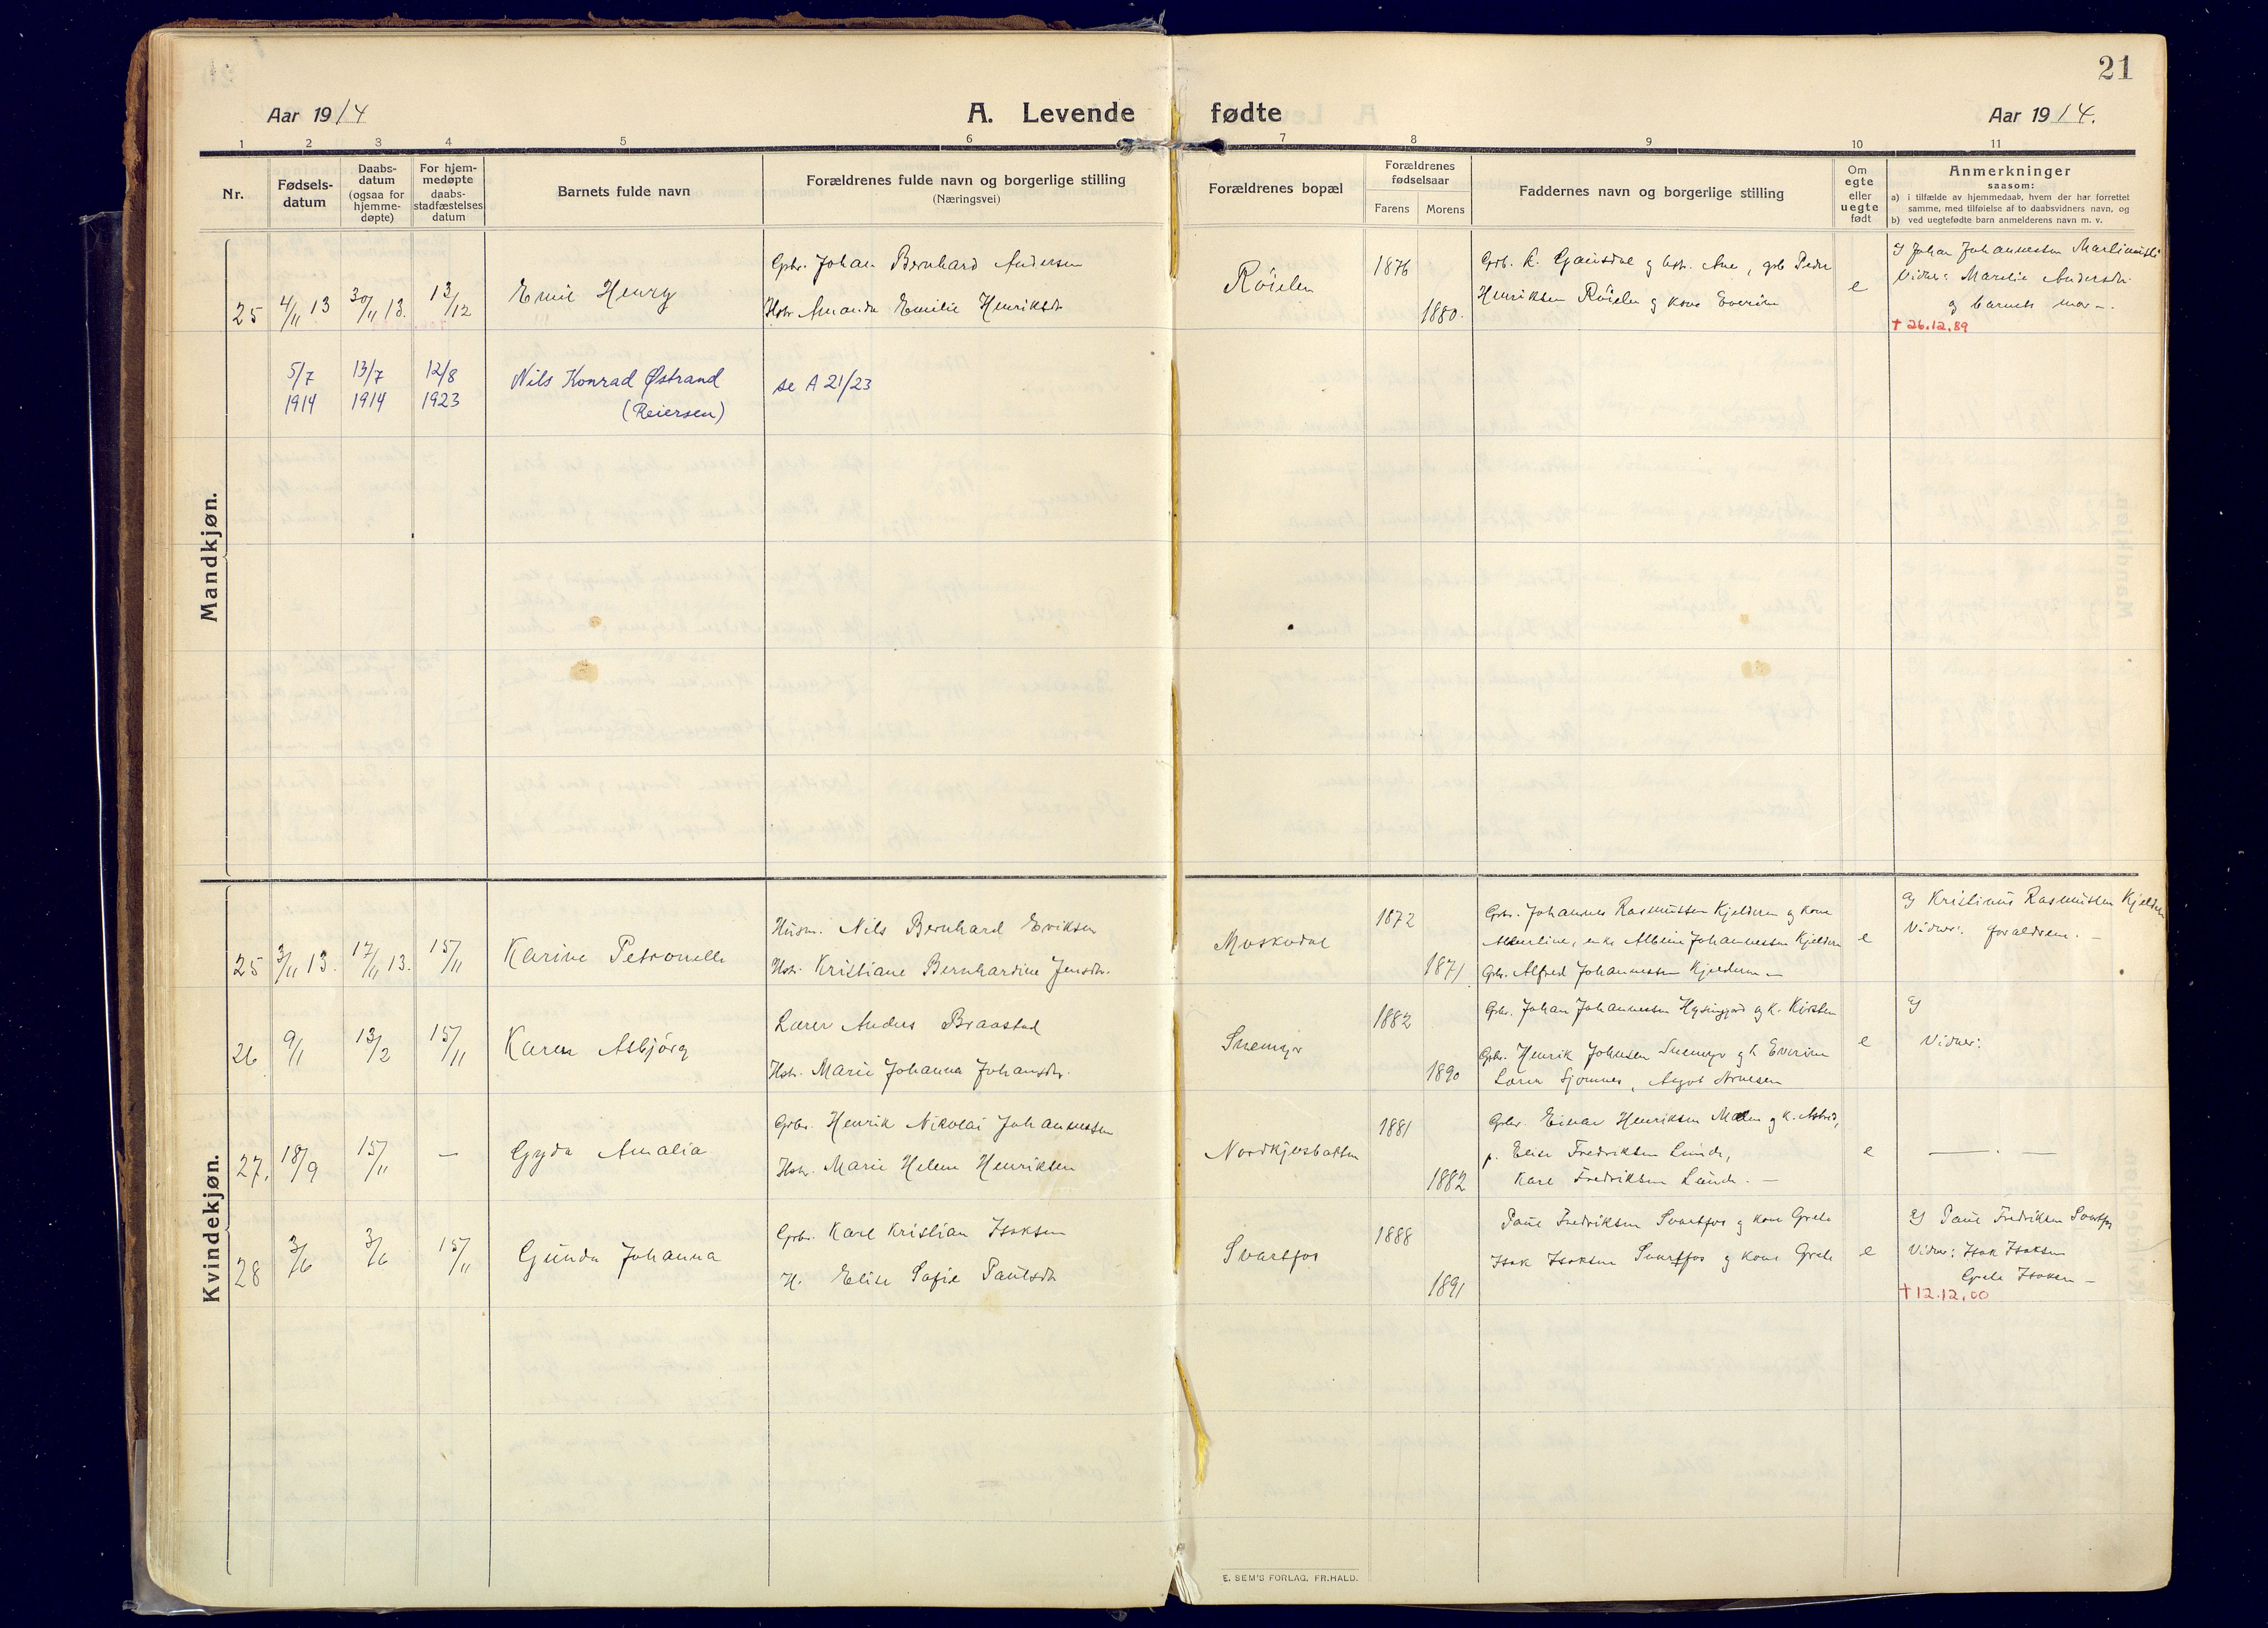 21
Aar 1914
A. Levende fødte
Aar 1914.
1 2 3 4 5 6 7 8 9 10 11
Nr.
Fødsels-
datum
Daabs-
datum
(ogsaa for
hjemme-
døpte)
For hjem-
medøpte
daabs-
stadfæstelses
datum
Barnets fulde navn
Forældrenes fulde navn og borgerlige stilling
(Næringsvei)
Forældrenes bopæl
Forældrenes
fødselsaar
Farens Morens
Faddernes navn og borgerlige stilling
Om
egte
eller
uegte
født
Anmerkninger
saasom:
a) i tilfælde av hjemmedaab, hvem der har forrettet
samme, med tilføielse af to daabsvidners navn, og
b) ved uegtefødte barn anmelderens navn m. v.
Mandkjøn.
25 4/11 13 30/11 13. 13/12 Emil Henry
Gbr. Johan Bernhard Andersen
Hstr. Amanda Emilie Henriksdtr
Röielen
1876
1880.
Grb. K. Gausdal og hst. Ane, grb Peder
Henriksen Röielen og kone Everine
e
Johan Johannesen
Vidner: Marelie Andersdtr.
og barnets mor -.
† 26.12.89
5/7 1914 13/7 1914 12/8 1923
Nils Konrad Østrand
(Reiersen)
se A 21/23
Kvindekjøn.
25 3/11 13. 17/11 13. 15/11 Karine Petronelle
Husm. Nils Bernhard Eriksen
Hstr. Kristiane Bernhardine Jensdtr.
Moskodal
1872
1871
Gbr. Johannes Rasmussen Kjelderen og kone
Alberline, enke Albine Johannessen Kjelderen
Gbr. Alfred Johannessen Kjelderen -
e
Kristinus Rasmussen Kjelderen
Vidner: forældrene. -
26 9/1 13/2 15/11 Karen Asbjörg
Lærer Anders Braastad
Hstr. Marie Johanna Johansdtr.
Snemyr
1882
1890
Gbr. Johan Johannessen Hysingjord og k. Kirsten
Gbr. Henrik Johnsen Snemyr og h Everine
Lærer Sjömnes, Aagot Arnesen
e
Vidner:
27. 18/9 15/11 — Gyda Amalia
Gbr. Henrik Nikolai Johannessen
Hstr. Marie Helene Henriksen
Nordkjosbotten
1881
1882
Gbr. Einar Henriksen Moen og k. Astrid,
p. Elise Fredriksen Lunde,
Karl Fredriksen Lunde. —
e
— . —
28 3/6 3/6 15/11 Gunda Johanna
Gbr. Karl Kristian Isaksen
H. Elise Sofie Paulsdtr
Svartfos
1888
1891
Paul Fredriksen Svartfos og kone Grete
Isak Isaksen Svartfos og kone Grete
e
Paul Fredriksen Svartfos
Vidner: Isak Isaksen
Grete Isaksen —
† 12.12.00
E. SEM'S FORLAG, FR.HALD.